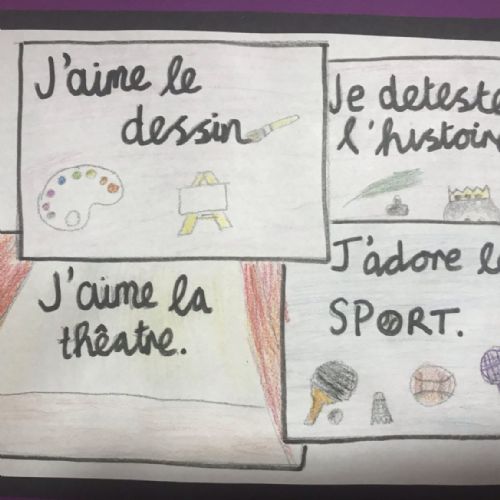 J'aime le
dessin
Je deteste
l'histoire
J'aime la
thêatre.
J'adore le
SPORT.